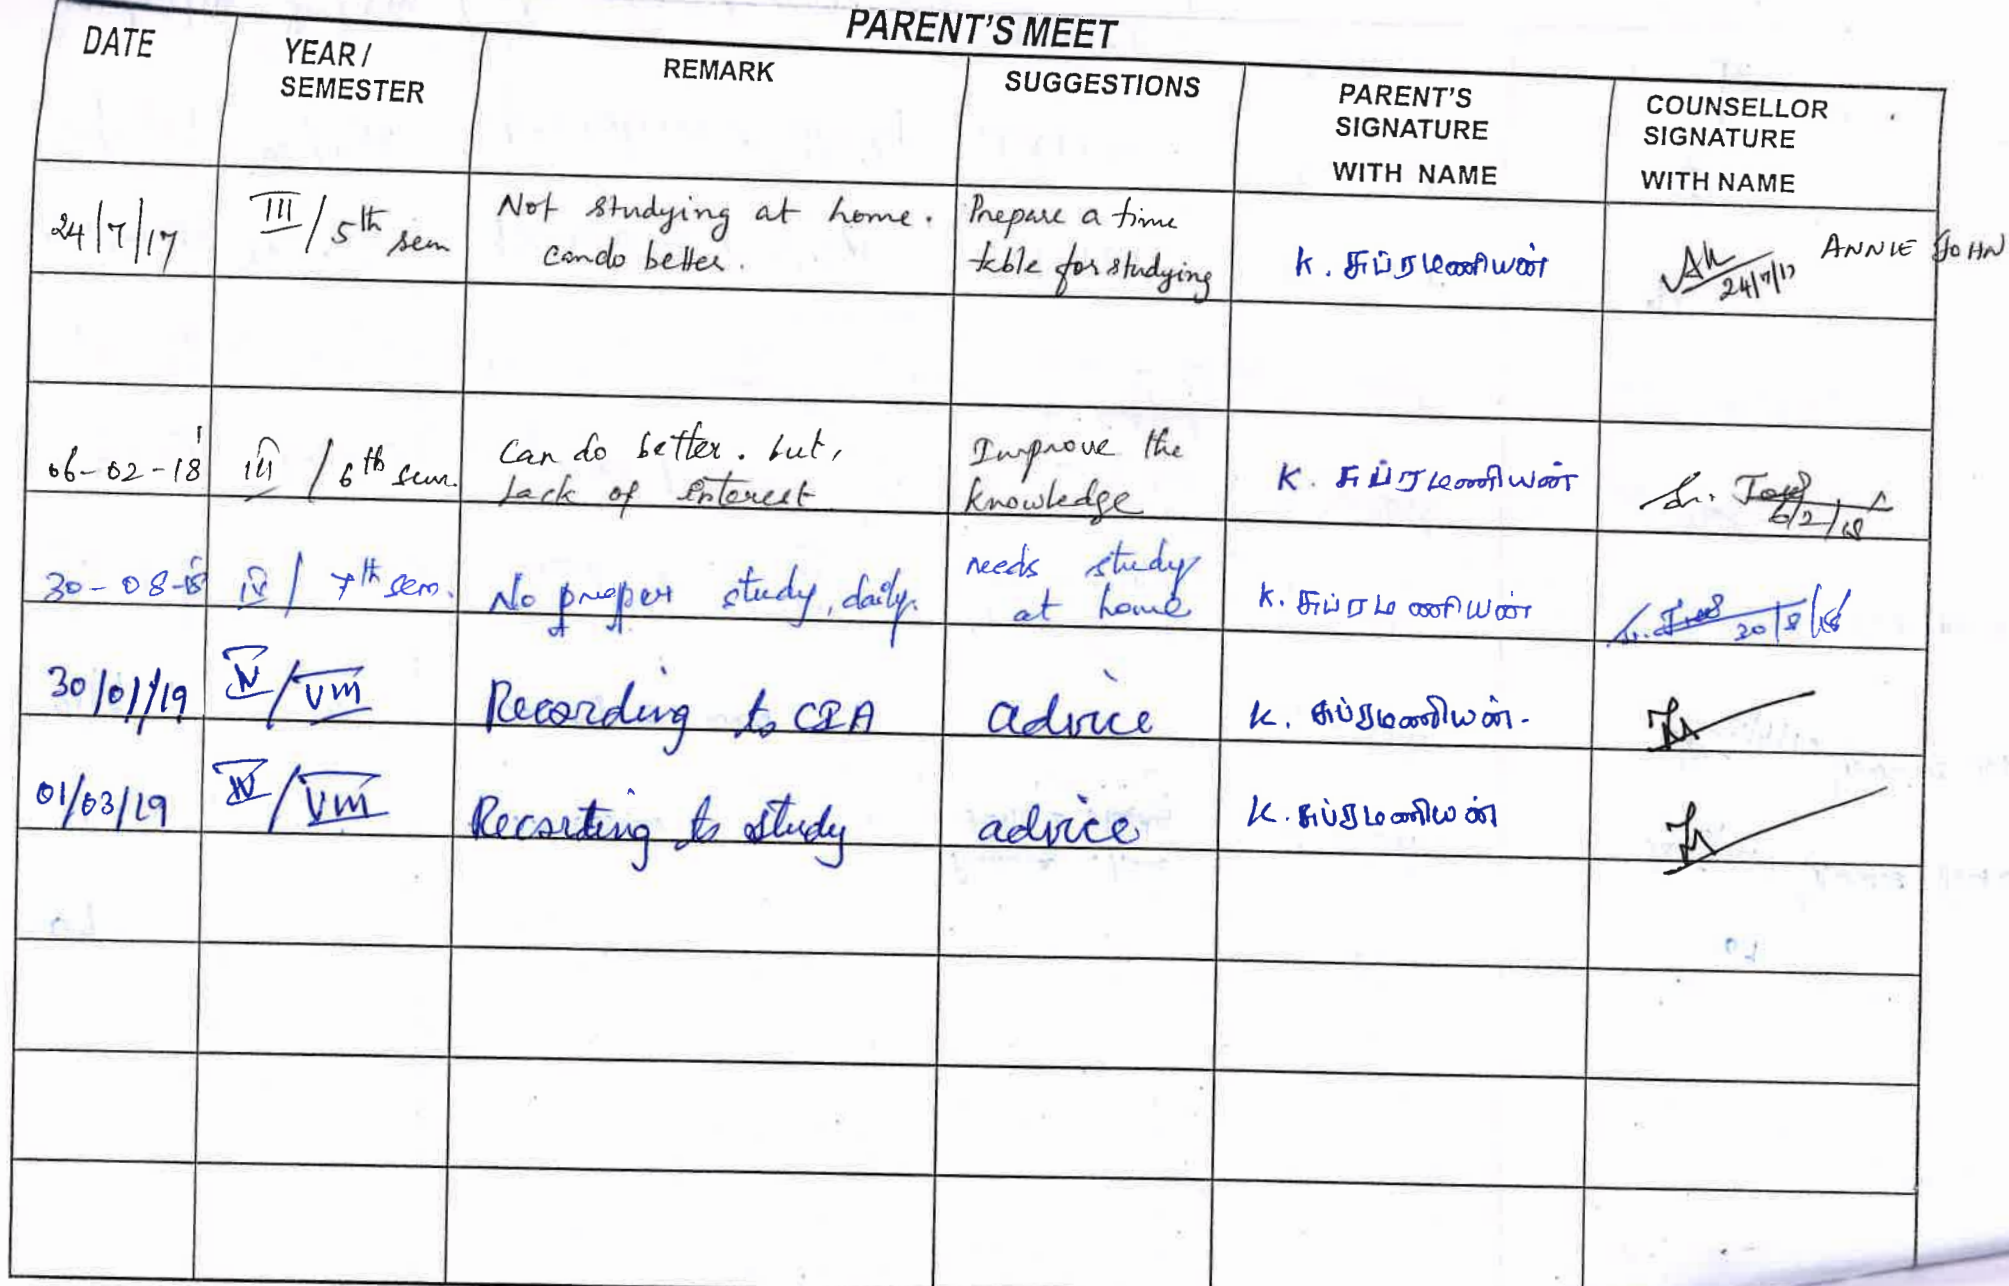 PARENT'S MEET
DATE
YEAR /
SEMESTER
REMARK
SUGGESTIONS
PARENT'S
SIGNATURE
WITH NAME
COUNSELLOR
SIGNATURE
WITH NAME
24/7/17
III / 5th sem
Not studying at home.
can do better.
Prepare a time
table for studying
K. சுப்ரமணியன்
24/7/17
ANNIE JOHN
06-02-18
III / 6th sem.
Can do better. but,
Lack of interest
Improve the
knowledge
K. சுப்ரமணியன்
6/2/18
30-08-18
IV / 7th sem.
No proper study, daily.
needs study
at home
K. சுப்ரமணியன்
30/8/18
30/01/19
IV / VIII
Recording to CIA
advice
K. சுப்ரமணியன்.
01/03/19
IV / VIII
Recarting to study
advice
K. சுப்ரமணியன்